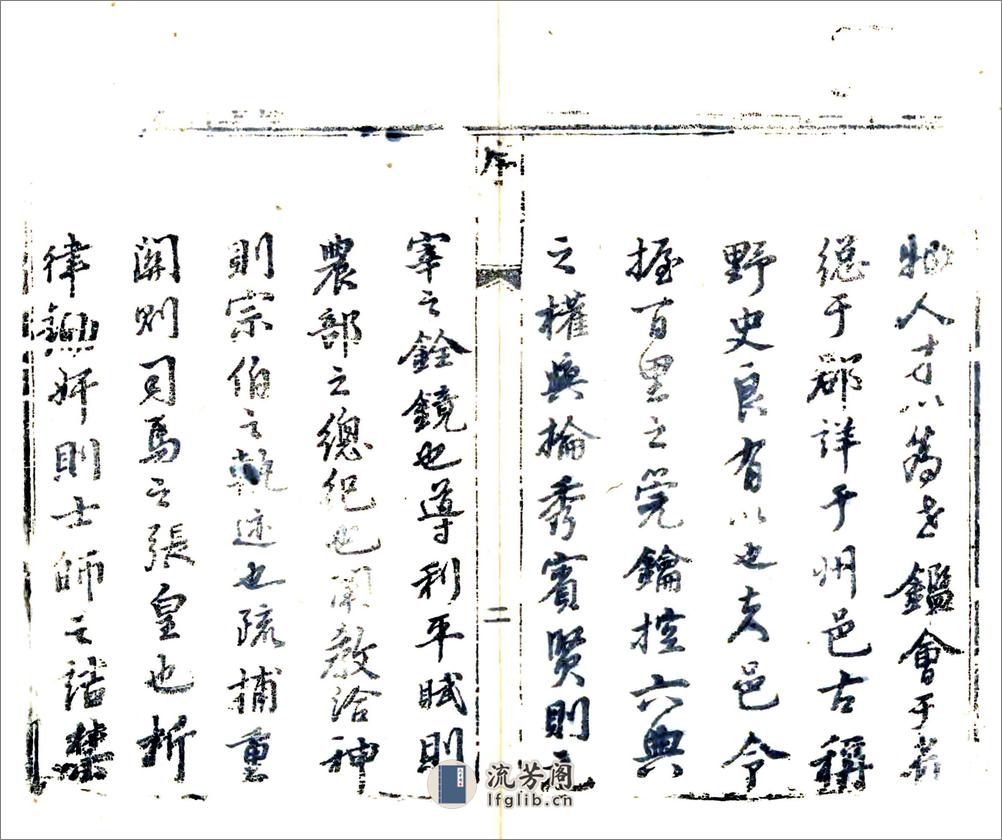 人才以為世鑑會于省
總于郡詳于州邑古稱
野史良有以也夫邑令
握百里之筦鑰控六典
之權輿掄秀賓賢則
序
二
宰之銓鏡也導利平賦則
農部之總紀也闡教洽神
則宗伯之軌迹也疏捕重
關則司馬之張皇也析
律鋤奸則士師之詰禁
流芳阁
lfglib.cn